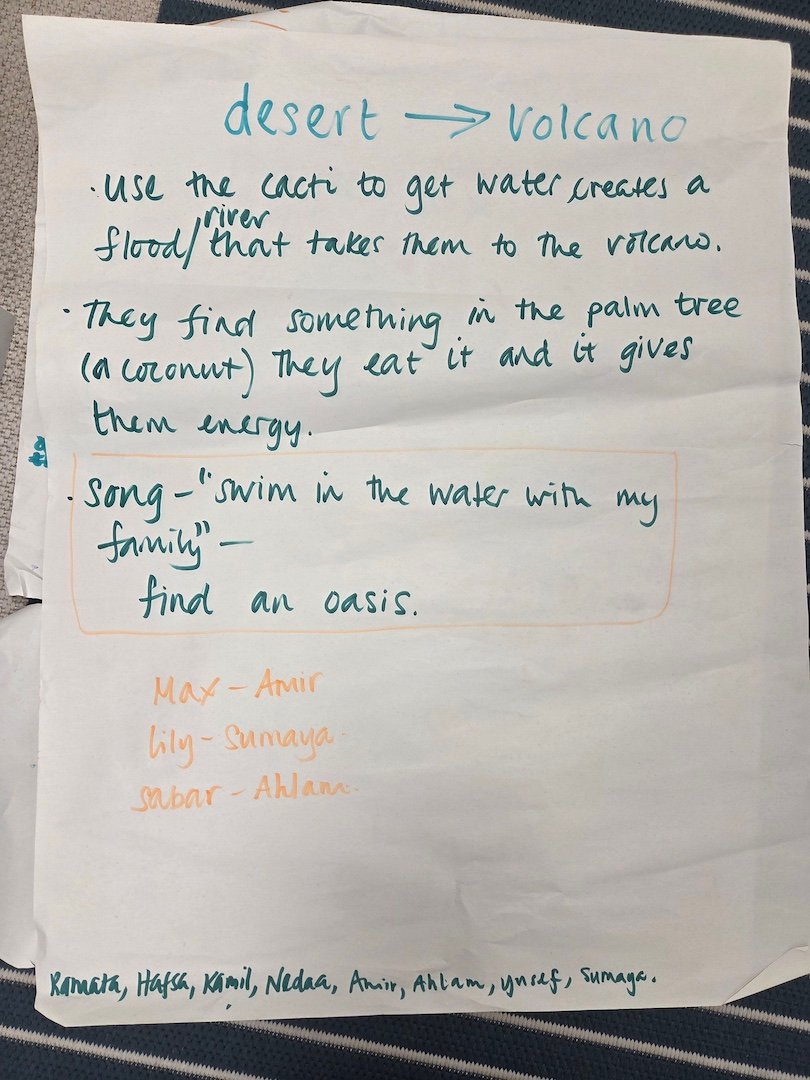 desert → volcano
· Use the cacti to get water, creates a
river
flood/that takes them to the volcano.
· They find something in the palm tree
(a coconut) They eat it and it gives
them energy.
· Song - "swim in the water with my
family" -
find an oasis.
Max - Amir
Lily - Sumaya.
Sabar - Ahlam.
Ramata, Hafsa, Kamil, Nedaa, Amir, Ahlam, Yusef, Sumaya.